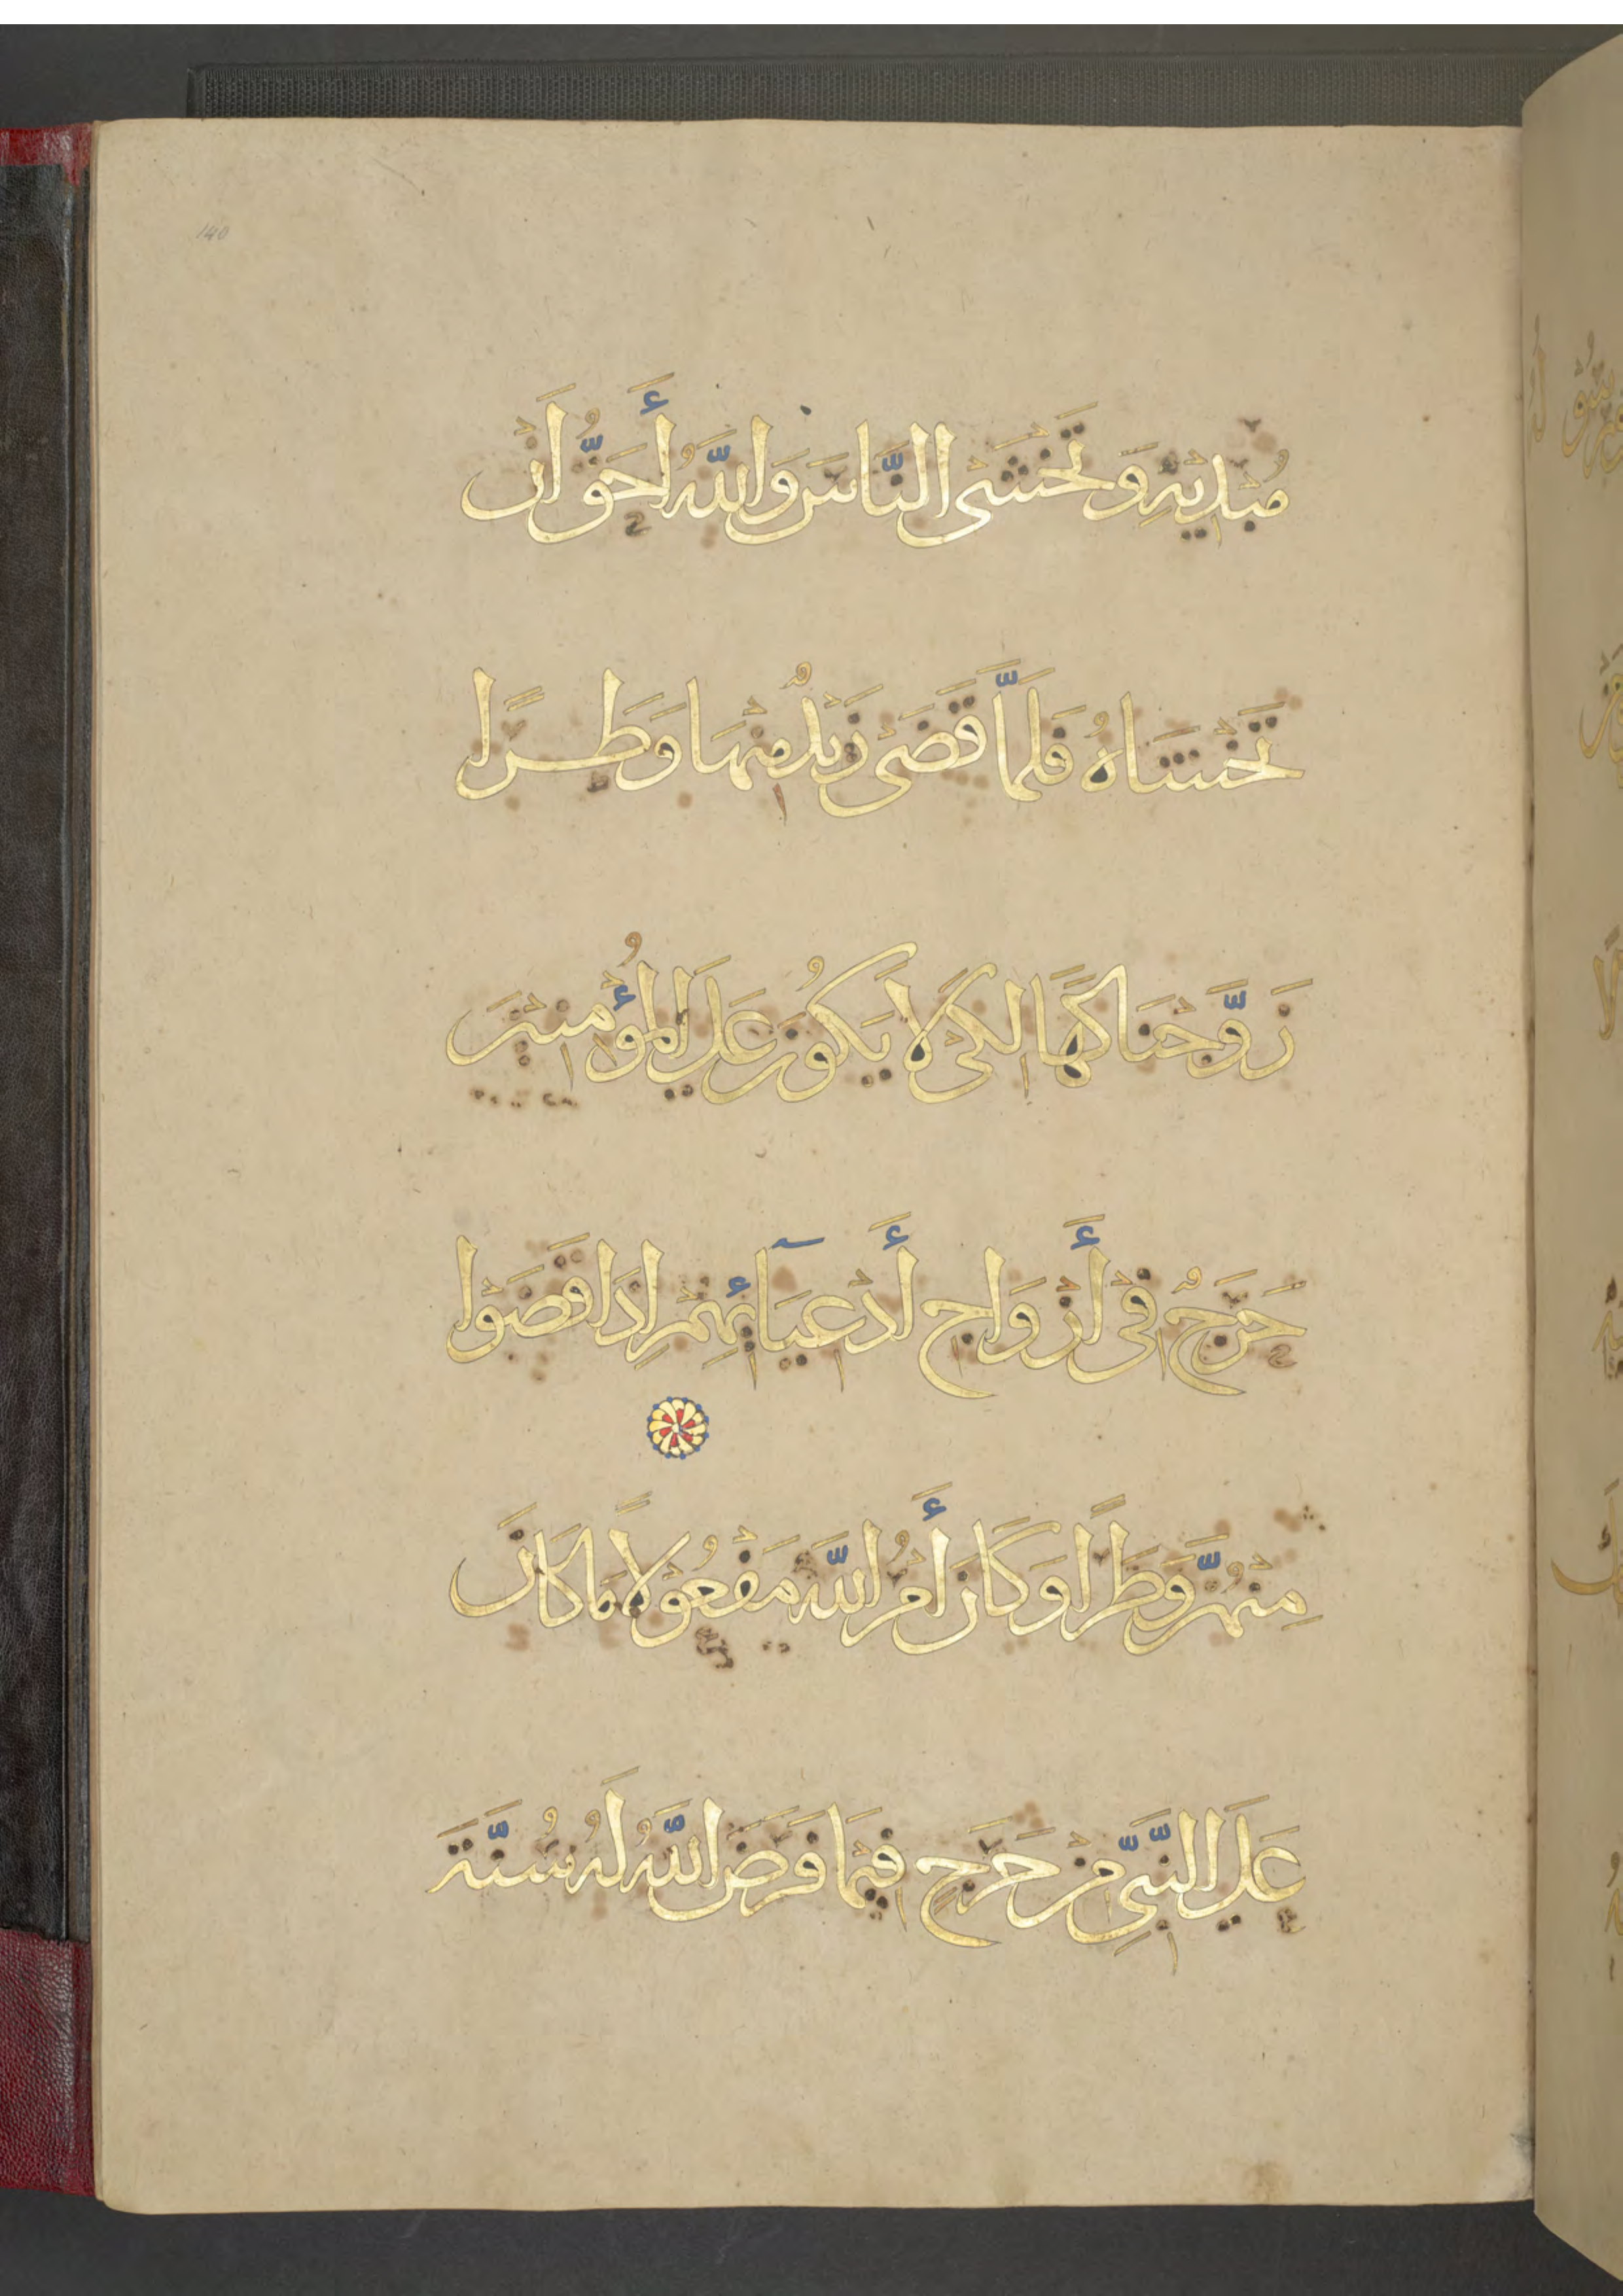 140
مُبْدِيْهِ وَتَخْشَى النَّاسَ وَاللَّهُ أَحَقُّ اَنْ
تَخْشَاهُ فَلَمَّا قَضَىْ زَيْدٌ مِنْهَا وَطَــرًا
زَوَّجْنَاكَهَا لِكَىْ لَا يَكُوْنَ عَلَى الْمُؤْمِنِيْنَ
حَرَجٌ فِىْ أَزْوَاجِ أَدْعِيَآئِهِمْ اِذَا قَضَوْا
مِنْهُنَّ وَطَرًا وَكَانَ أَمْرُ اللَّهِ مَفْعُوْلًا مَا كَانَ
عَلَى النَّبِىِّ مِنْ حَرَجٍ فِيْمَا فَرَضَ اللَّهُ لَهُ سُنَّةَ